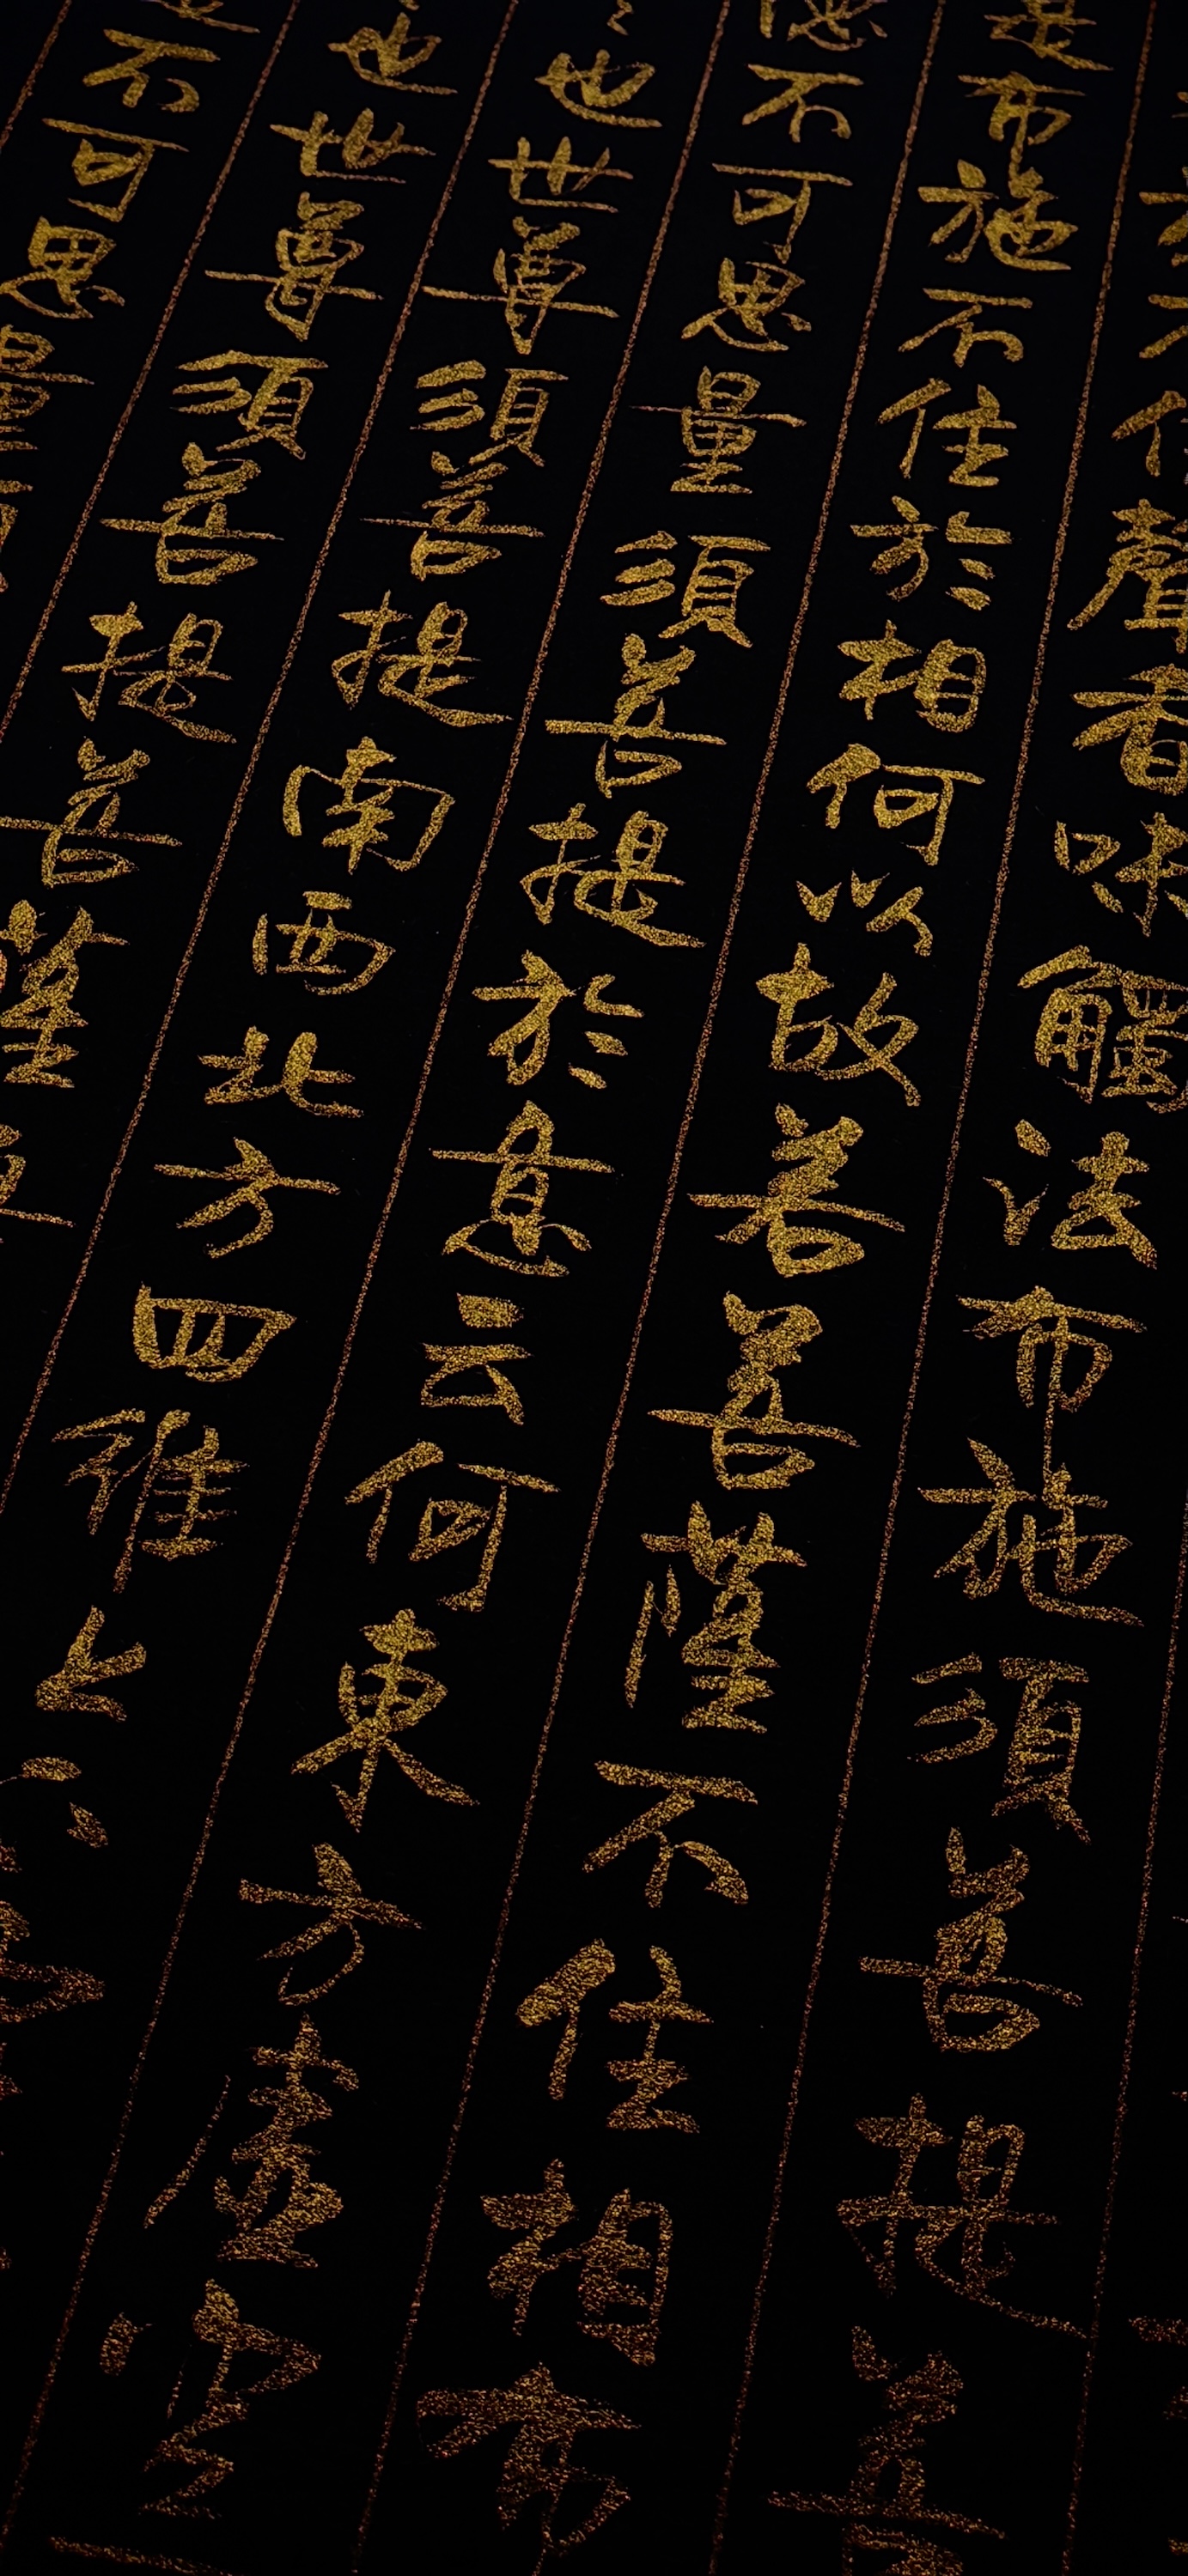 不住聲香味觸法布施須菩提菩
是布施不住於相何以故若菩薩不住相布
德不可思量須菩提於意云何東方虛空
也世尊須菩提南西北方四維上下
也世尊須菩提菩薩
不可思量